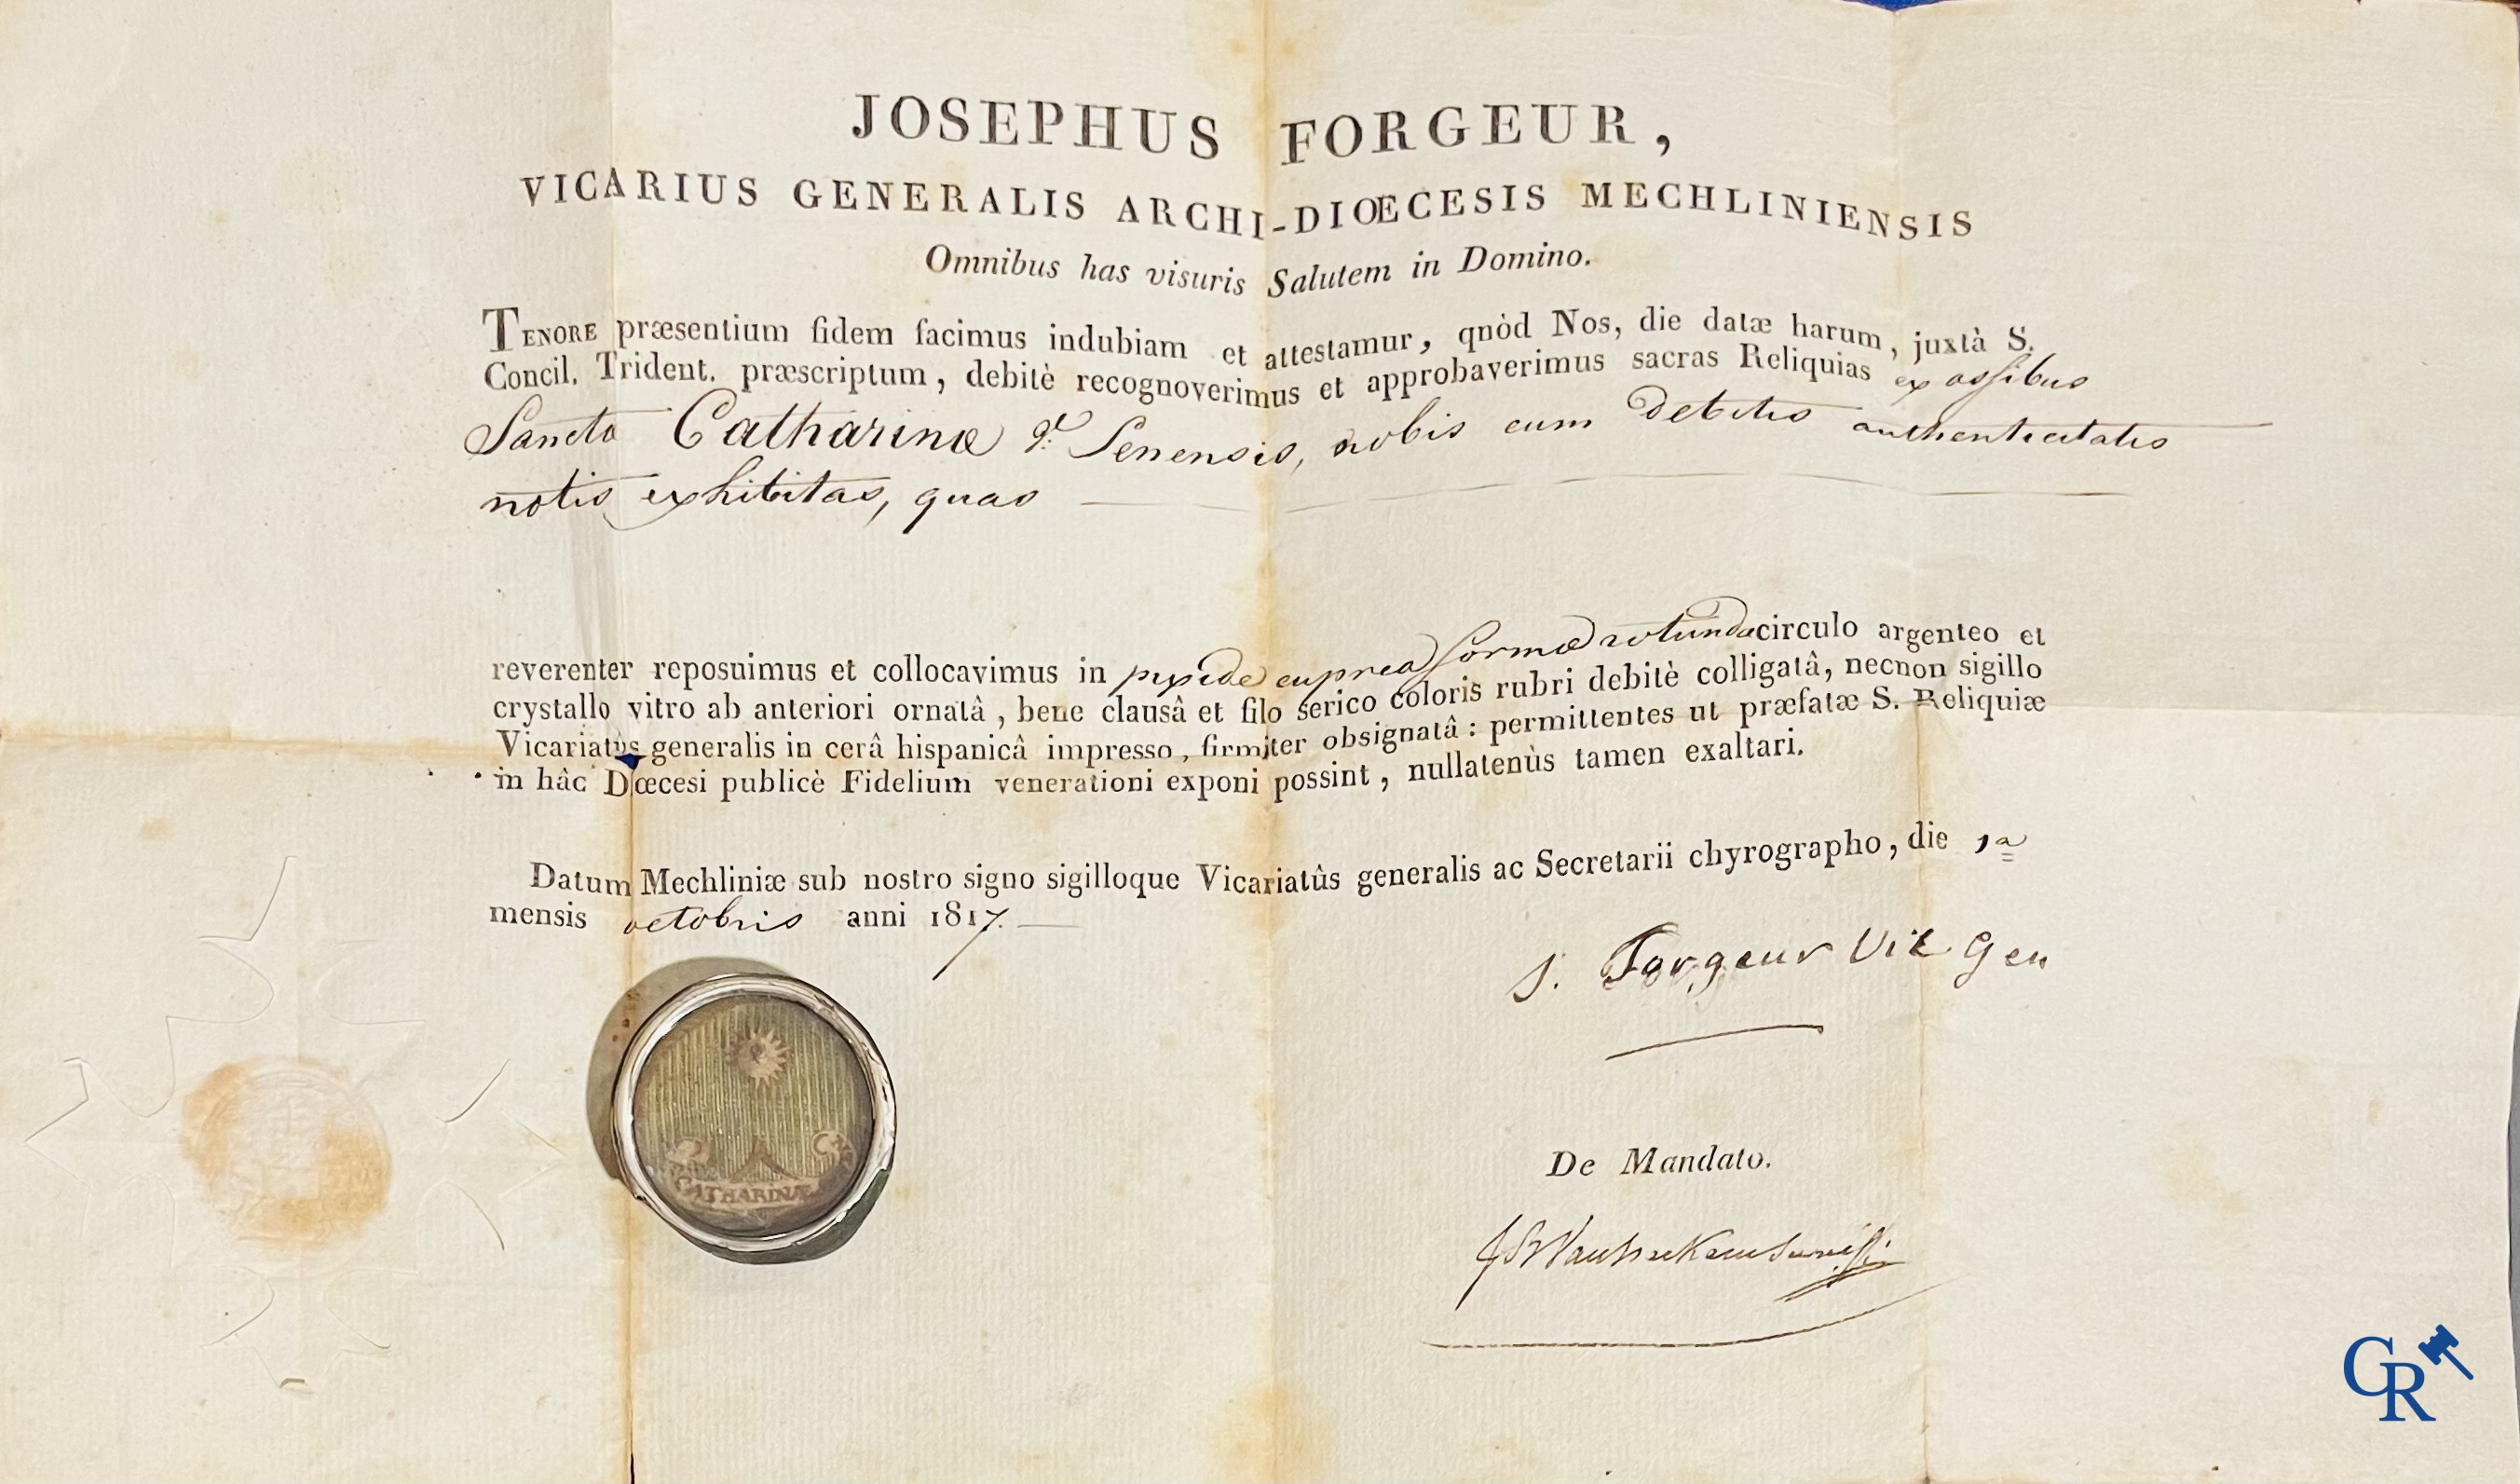 JOSEPHUS FORGEUR,
VICARIUS GENERALIS ARCHI-DIŒCESIS MECHLINIENSIS
Omnibus has visuris Salutem in Domino.
TENORE præsentium fidem facimus indubiam et attestamur, quòd Nos, die datæ harum, juxtà S.
Concil. Trident. præscriptum, debitè recognoverimus et approbaverimus sacras Reliquias ex ossibus
Sanctæ Catharinæ Senensis, nobis cum debitis authenticitatis
notis exhibitas, quas
reverenter reposuimus et collocavimus in pyxide cuprea formæ rotundæ circulo argenteo et
crystallo vitro ab anteriori ornatâ, bene clausâ et filo serico coloris rubri debitè colligatâ, necnon sigillo
Vicariatûs generalis in cerâ hispanicâ impresso, firmiter obsignatâ: permittentes ut præfatæ S. Reliquiæ
in hâc Diœcesi publicè Fidelium venerationi exponi possint, nullatenùs tamen exaltari.
Datum Mechliniæ sub nostro signo sigilloque Vicariatûs generalis ac Secretarii chyrographo, die 1a
mensis octobris anni 1817.
J. Forgeur Vic Gen
CATHARINÆ
De Mandato.
CR